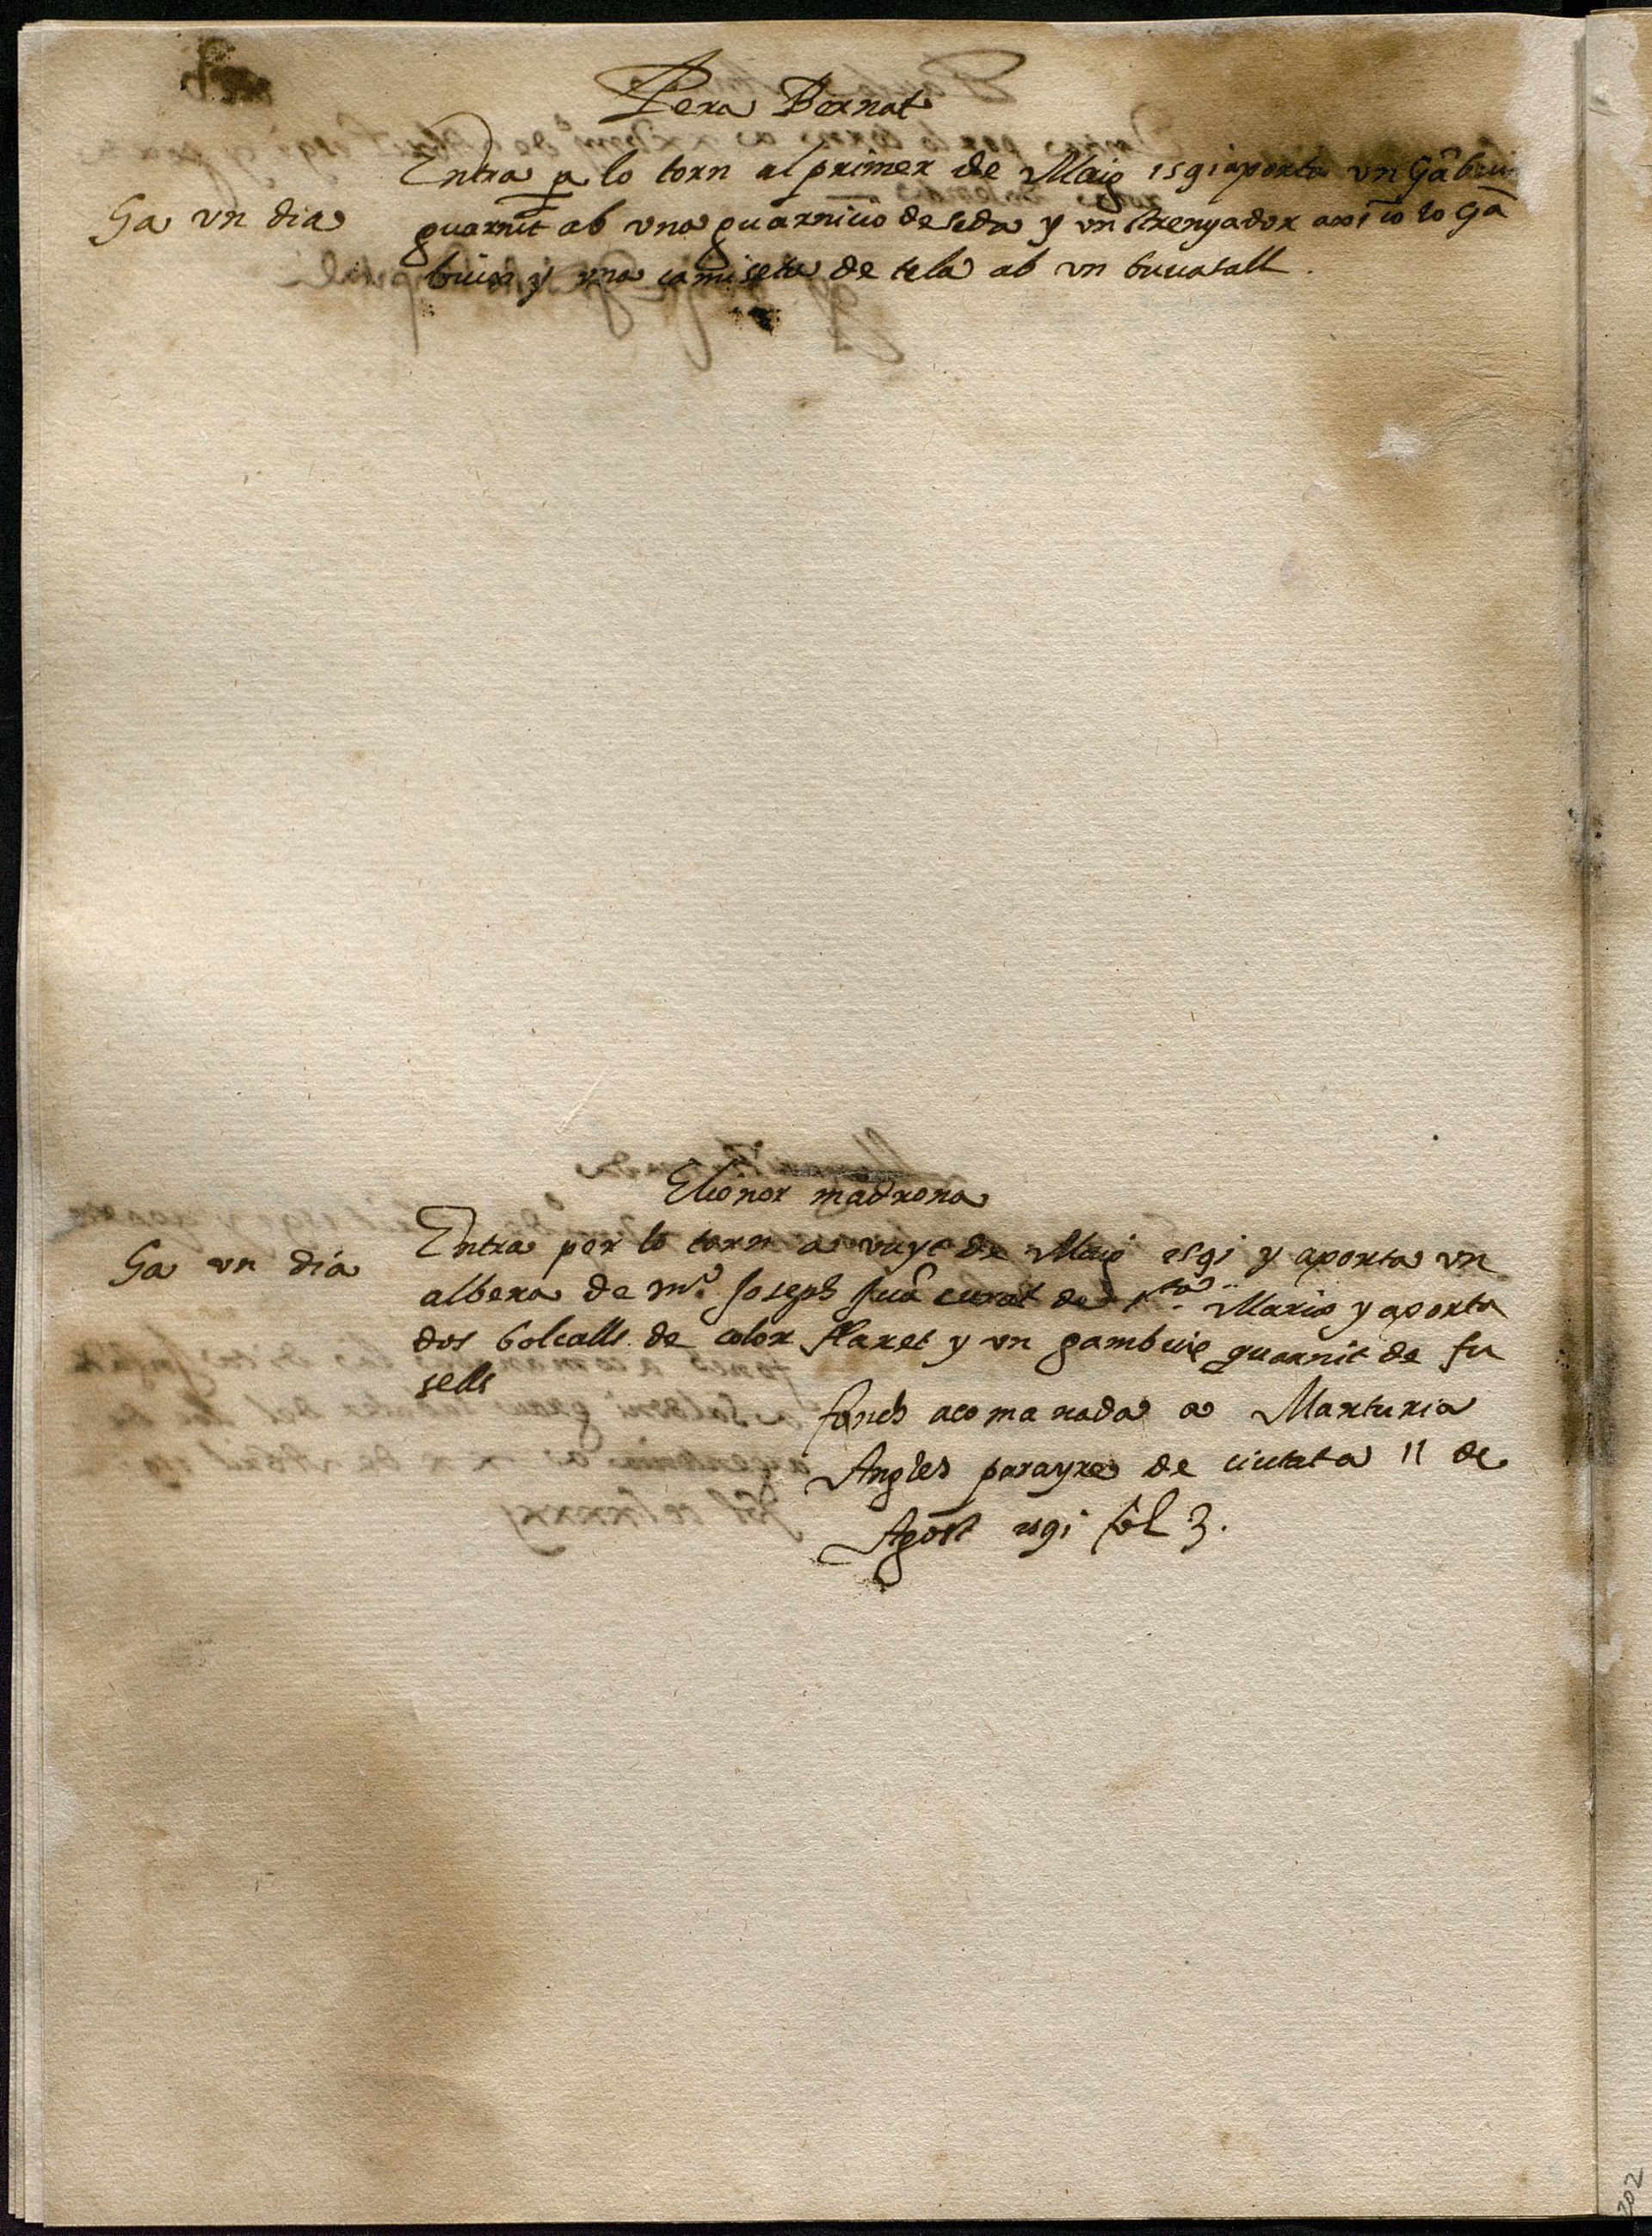 Pera Bernat
Entra p lo torn al primer de Maig 1591 aporta vn Gãbuix
Ga vn dia
guarnit ab vna guarnicio de seda y vn strenyador axi cõ lo gã
buix y vna camiseta de tela ab vn cuuatall.
Elionor madrona
Entra per lo torn a vuyt de Maig 1591 y aporta vn
Ga vn dia
albera de mº. Joseph Juã curat de Sta. Maria y aporta
dos bolcalls de color flaret y vn gambuix guarnit de fu
sells
fonch acomanada a Marturia
Angles parayre de ciutat a 11 de
Agost 1591 fol 3.
202